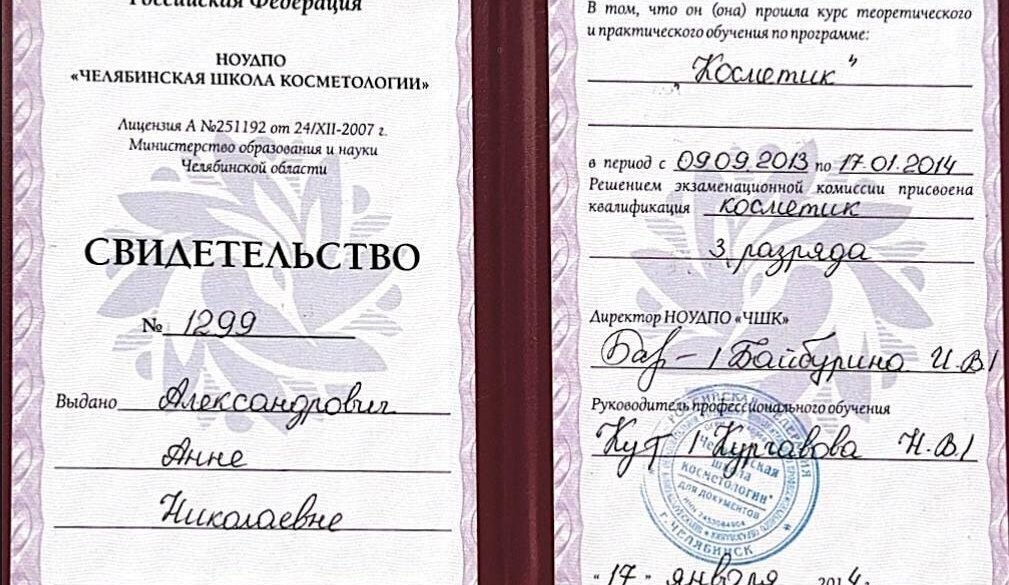 Российская Федерация
НОУДПО
«ЧЕЛЯБИНСКАЯ ШКОЛА КОСМЕТОЛОГИИ»
Лицензия А №251192 от 24/XII-2007 г.
Министерство образования и науки
Челябинской области
СВИДЕТЕЛЬСТВО
№ 1299
Выдано Александрович
Анне
Николаевне
В том, что он (она) прошла курс теоретического
и практического обучения по программе:
„Косметик"
в период с 09.09.2013 по 17.01.2014
Решением экзаменационной комиссии присвоена
квалификация косметик
3 разряда
Директор НОУДПО «ЧШК»
/ Байбурина И.В/
Руководитель профессионального обучения
/ Кургавова Н.В/
"Челябинская
школа
косметологии"
для документов
г. ЧЕЛЯБИНСК
"17" января 2014 г.